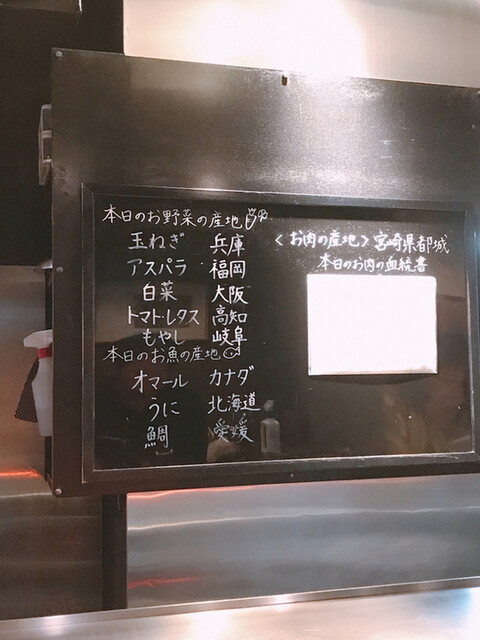 本日のお野菜の産地
玉ねぎ 兵庫
アスパラ 福岡
白菜 大阪
トマト・レタス 高知
もやし 岐阜
本日のお魚の産地
オマール カナダ
うに 北海道
鯛 愛媛
〈お肉の産地〉宮崎県都城
本日のお肉の血統書